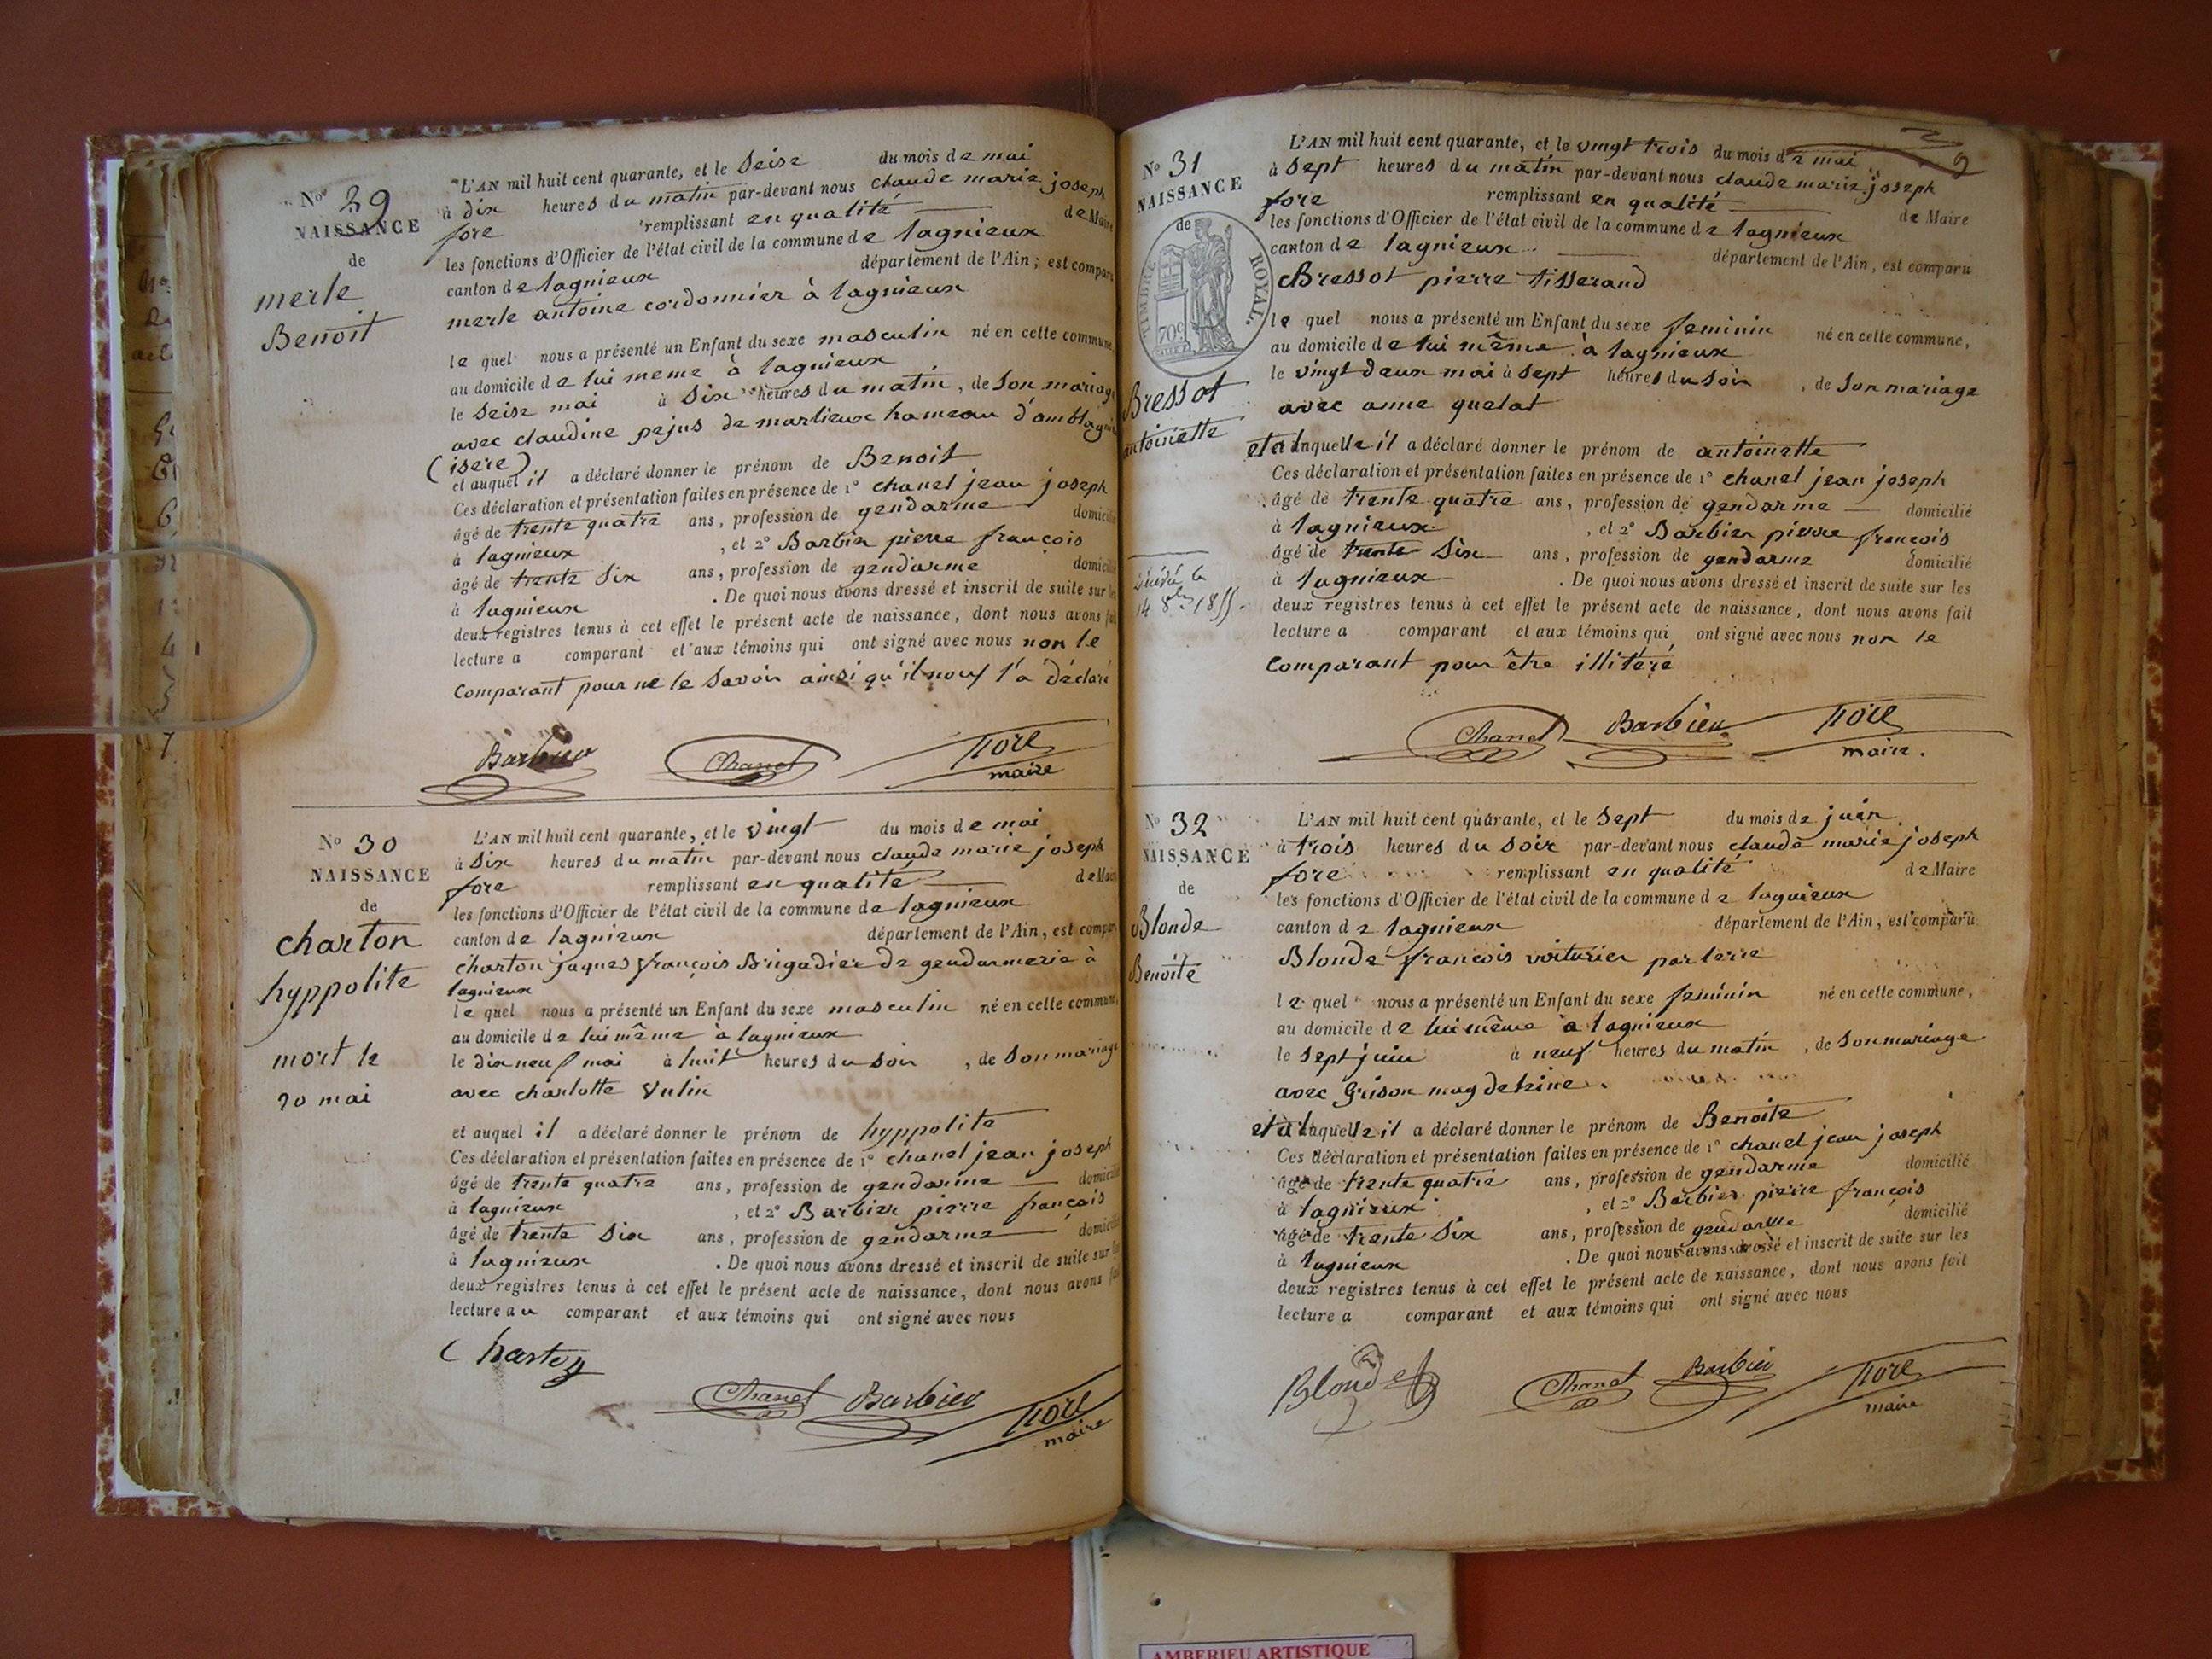 No 29
NAISSANCE
de
merle
Benoit
L'AN mil huit cent quarante, et le Seise du mois de mai
à dix heures du matin par-devant nous claude marie joseph
fore remplissant en qualité de Maire
les fonctions d'Officier de l'état civil de la commune de lagnieux
canton de lagnieux département de l'Ain; est comparu
merle antoine cordonnier à lagnieux
le quel nous a présenté un Enfant du sexe masculin né en cette commune,
au domicile de lui meme à lagnieux
le Seise mai à Six heures du matin, de Son mariage
avec claudine pejus de marlieux hameau d'amblagnieu
(isere)
et auquel il a déclaré donner le prénom de Benoit
Ces déclaration et présentation faites en présence de 1° chanel jean joseph
âgé de trente quatre ans, profession de gendarme domicilié
à lagnieux, et 2° Barbier pierre françois
âgé de trente Six ans, profession de gendarme domicilié
à lagnieux. De quoi nous avons dressé et inscrit de suite sur les
deux registres tenus à cet effet le présent acte de naissance, dont nous avons fait
lecture a comparant et aux témoins qui ont signé avec nous non le
comparant pour ne le Savoir ainsi qu'il nous l'a déclaré
Barbier Chanel fore
maire
No 30
NAISSANCE
de
charton
hyppolite
mort le
20 mai
L'AN mil huit cent quarante, et le vingt du mois de mai
à Six heures du matin par-devant nous claude marie joseph
fore remplissant en qualité de Maire
les fonctions d'Officier de l'état civil de la commune de lagnieux
canton de lagnieux département de l'Ain, est comparu
charton jaques françois Brigadier de gendarmerie à
lagnieux
le quel nous a présenté un Enfant du sexe masculin né en cette commune,
au domicile de lui même à lagnieux
le dix neuf mai à huit heures du Soir, de Son mariage
avec charlotte Vulin
et auquel il a déclaré donner le prénom de hyppolite
Ces déclaration et présentation faites en présence de 1° chanel jean joseph
âgé de trente quatre ans, profession de gendarme domicilié
à lagnieux, et 2° Barbier pierre françois
âgé de trente Six ans, profession de gendarme domicilié
à lagnieux. De quoi nous avons dressé et inscrit de suite sur les
deux registres tenus à cet effet le présent acte de naissance, dont nous avons fait
lecture au comparant et aux témoins qui ont signé avec nous
Charton
Chanel Barbier fore
maire
No 31
NAISSANCE
de
TIMBRE ROYAL
70c
Bressot
antoinette
14 8bre 1855.
L'AN mil huit cent quarante, et le vingt trois du mois de mai
à Sept heures du matin par-devant nous claude marie joseph
fore remplissant en qualité de Maire
les fonctions d'Officier de l'état civil de la commune de lagnieux
canton de lagnieux département de l'Ain, est comparu
Bressot pierre tisserand
le quel nous a présenté un Enfant du sexe feminin né en cette commune,
au domicile de lui même à lagnieux
le vingt deux mai à Sept heures du Soir, de Son mariage
avec anne quelat
et a laquelle il a déclaré donner le prénom de antoinette
Ces déclaration et présentation faites en présence de 1° chanel jean joseph
âgé de trente quatre ans, profession de gendarme domicilié
à lagnieux, et 2° Barbier pierre francois
âgé de trente Six ans, profession de gendarme domicilié
à lagnieux. De quoi nous avons dressé et inscrit de suite sur les
deux registres tenus à cet effet le présent acte de naissance, dont nous avons fait
lecture a comparant et aux témoins qui ont signé avec nous non le
comparant pour être illitéré
Chanel Barbier fore
maire.
No 32
NAISSANCE
de
Blonde
Benoite
L'AN mil huit cent quarante, et le Sept du mois de juin
à trois heures du Soir par-devant nous claude marie joseph
fore remplissant en qualité de Maire
les fonctions d'Officier de l'état civil de la commune de lagnieux
canton de lagnieux département de l'Ain, est comparu
Blonde francois voiturier par terre
le quel nous a présenté un Enfant du sexe feminin né en cette commune,
au domicile de lui même a lagnieux
le Sept juin à neuf heures du matin, de Son mariage
avec Grison magdeleine
et a laquelle il a déclaré donner le prénom de Benoite
Ces déclaration et présentation faites en présence de 1° chanel jean joseph
âgé de trente quatre ans, profession de gendarme domicilié
à lagnieux, et 2° Barbier pierre françois
âgé de trente Six ans, profession de gendarme domicilié
à lagnieux. De quoi nous avons dressé et inscrit de suite sur les
deux registres tenus à cet effet le présent acte de naissance, dont nous avons fait
lecture a comparant et aux témoins qui ont signé avec nous
Blonde Chanel Barbier fore
maire
AMBERIEU ARTISTIQUE